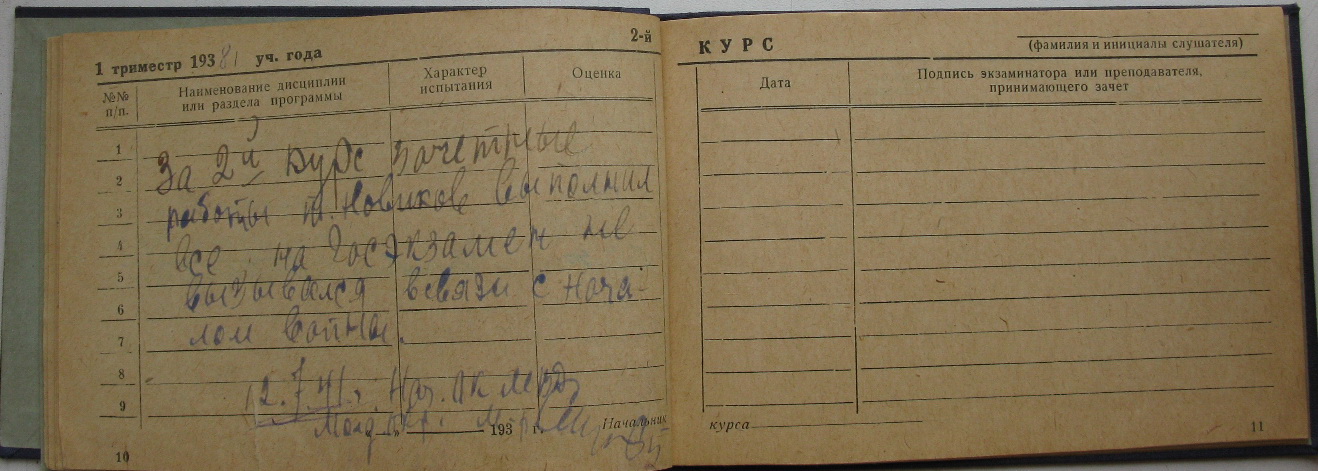 1 триместр 193 уч. года
2-й
№№ п/п.
Наименование дисциплин или раздела программы
Характер испытания
Оценка
1
2
3
4
5
6
7
8
9
За 2й курс зачетные
работы т. Новиков выполнил
все на Госэкзамен не
вызывался всвязи с нача-
лом войны.
12.7.41 г. Нач.
193 г. Начальник
10
КУРС
(фамилия и инициалы слушателя)
Дата
Подпись экзаменатора или преподавателя, принимающего зачет
курса
11